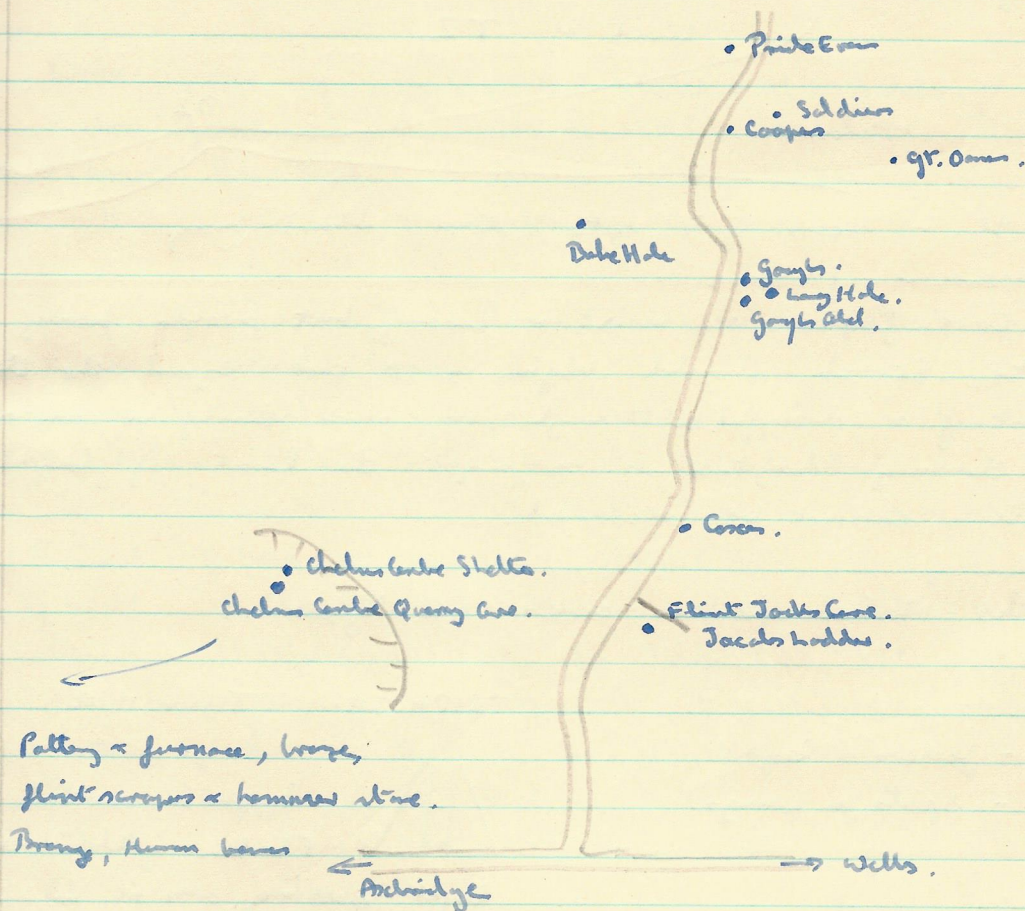 Pride Evans
Soldiers
Coopers
Gt. Oones.
Bone Hole
Goughs.
Long Hole.
Goughs Old.
Coxes.
Chelms Combe Shelter.
Chelms Combe Quarry Cave.
Flint Jacks Cave.
Jacobs Ladder.
Pottery & furnace, bronze,
flint scrapers & hammer stone.
Bronze, Human bones
Wells.
Axbridge